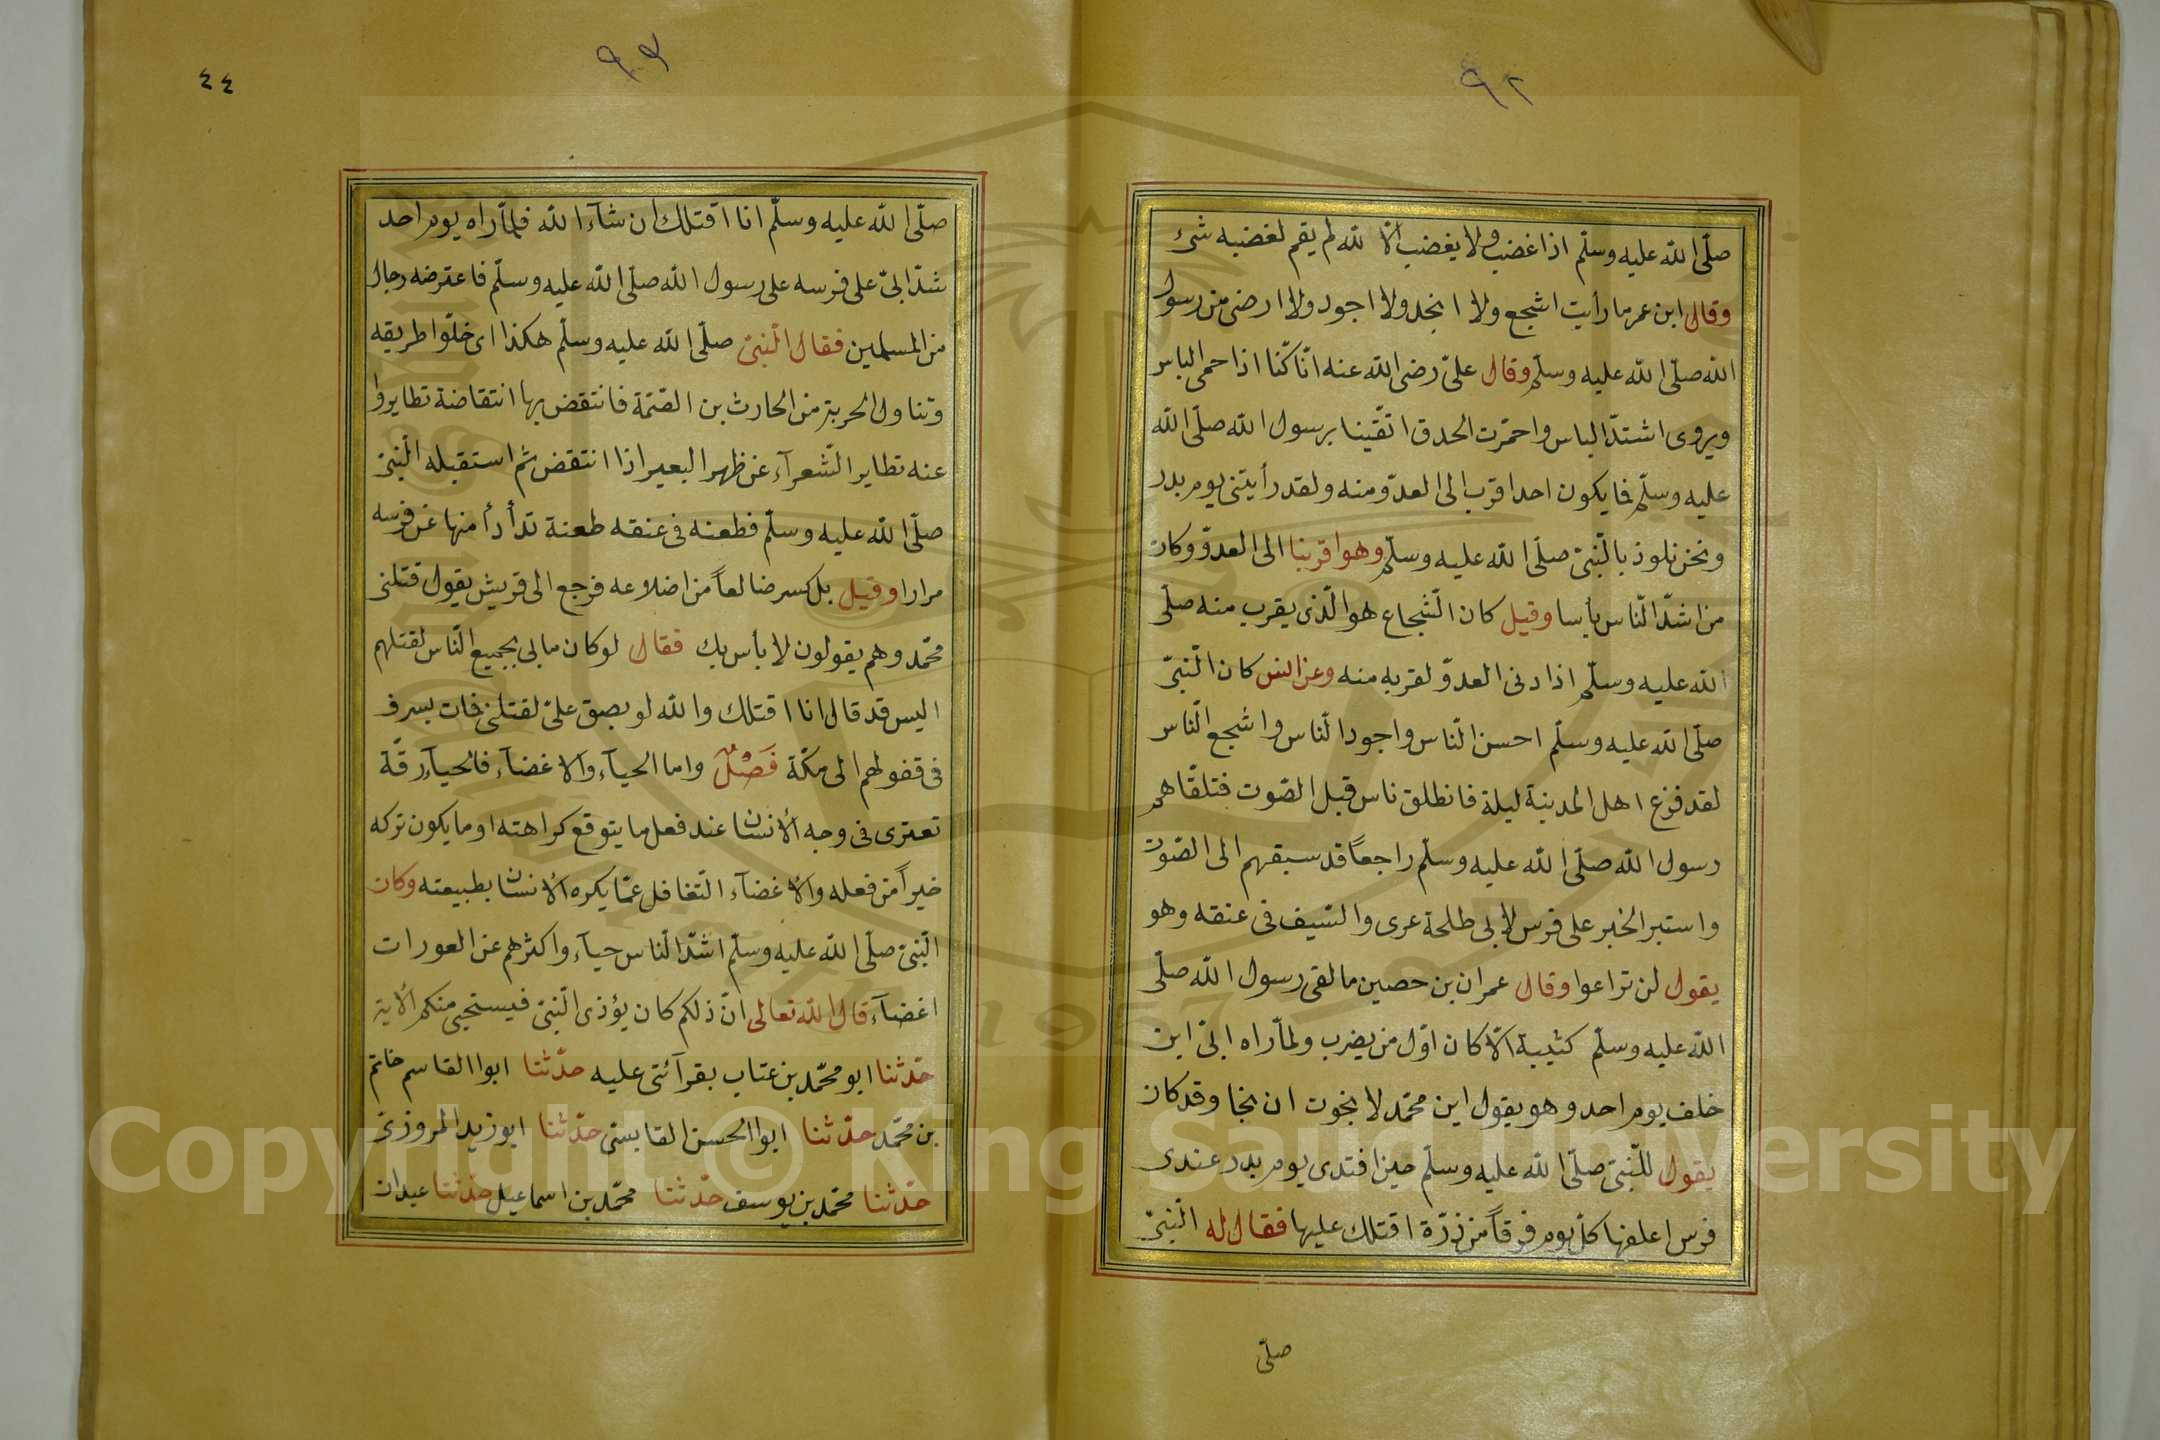 ٩٢
صلّى الله عليه وسلّم اذا غضب ولا يغضب الّا لله لم يقم لغضبه شئ
وقال ابن عمر ما رأيت اشجع ولا انجد ولا اجود ولا ارضى من رسول
الله صلّى الله عليه وسلّم وقال علىّ رضى الله عنه انّا كنّا اذا حمى الباس
ويروى اشتدّ الباس واحمرّت الحدق اتّقينا برسول الله صلّى الله
عليه وسلّم فما يكون احد اقرب الى العدوّ منه ولقد رأيتنى يوم بدر
ونحن نلوذ بالنّبىّ صلّى الله عليه وسلّم وهو اقربنا الى العدوّ وكان
من اشدّ النّاس بأسا وقيل كان الشّجاع هو الّذى يقرب منه صلّى
الله عليه وسلّم اذا دنى العدوّ لقربه منه وعن انس كان النّبىّ
صلّى الله عليه وسلّم احسن النّاس واجود النّاس واشجع النّاس
لقد فزع اهل المدينة ليلة فانطلق ناس قبل الصّوت فتلقّاهم
رسول الله صلّى الله عليه وسلّم راجعاً قد سبقهم الى الصّوت
واستبر الخبر على فرس لابى طلحة عرى والسّيف فى عنقه وهو
يقول لن تراعوا وقال عمران بن حصين ما لقى رسول الله صلّى
الله عليه وسلّم كتيبة الّا كان اوّل من يضرب ولمّا راه ابىّ ابن
خلف يوم احد وهو يقول اين محمّد لا نجوت ان نجا وقد كان
يقول للنّبىّ صلّى الله عليه وسلّم حين افتدى يوم بدر عندى
فرس اعلفها كلّ يوم فرقاً من ذرّة اقتلك عليها فقال له النّبىّ
صلّى
٤٤
٩٣
صلّى الله عليه وسلّم انا اقتلك ان شآء الله فلمّا راه يوم احد
شدّ ابىّ على فرسه على رسول الله صلّى الله عليه وسلّم فاعترضه رجال
من المسلمين فقال النّبىّ صلّى الله عليه وسلّم هكذا اى خلّوا طريقه
وتناول الحربة من الحارث بن الصّمّة فانتقض بها انتقاضة تطايروا
عنه تطاير الشّعرآء عن ظهر البعير اذا انتقض ثم استقبله النّبىّ
صلّى الله عليه وسلّم فطعنه فى عنقه طعنة تدأدأ منها عن فرسه
مرارا وقيل بل كسر ضالعاً من اضلاعه فرجع الى قريش يقول قتلنى
محمّد وهم يقولون لا بأس بك فقال لو كان ما بى بجميع النّاس لقتلهم
اليس قد قال انا اقتلك والله لو بصق علىّ لقتلنى فمات بسرف
فى قفولهم الى مكّة فَصْلٌ واما الحيآء والاغضآء فالحيآء رقّة
تعترى فى وجه الأنسان عند فعل ما يتوقع كراهته او ما يكون تركه
خيراً من فعله والاغضآء التّغافل عمّا يكره الأنسان بطبيعته وكان
النّبىّ صلّى الله عليه وسلّم اشدّ النّاس حيآء واكثرهم عن العورات
اغضآء قال الله تعالى انّ ذلكم كان يؤذى النّبىّ فيستحيى منكم الأية
حدّثنا ابو محمّد بن عتاب بقرآئتى عليه حدّثنا ابوا القاسم خاتم
بن محمّد حدّثنا ابوا الحسن القابسى حدّثنا ابو زيد المروزىّ
حدّثنا محمّد بن يوسف حدّثنا محمّد بن اسماعيل حدّثنا عبدان
Copyright © King Saud University